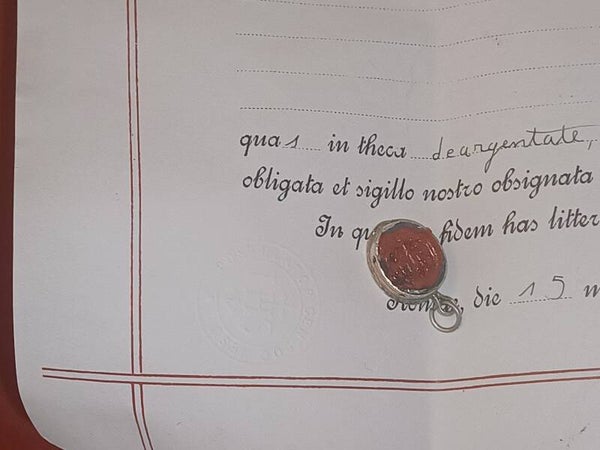 quas in theca deargentate,
obligata et sigillo nostro obsignata
In fidem has litter
die 15 m